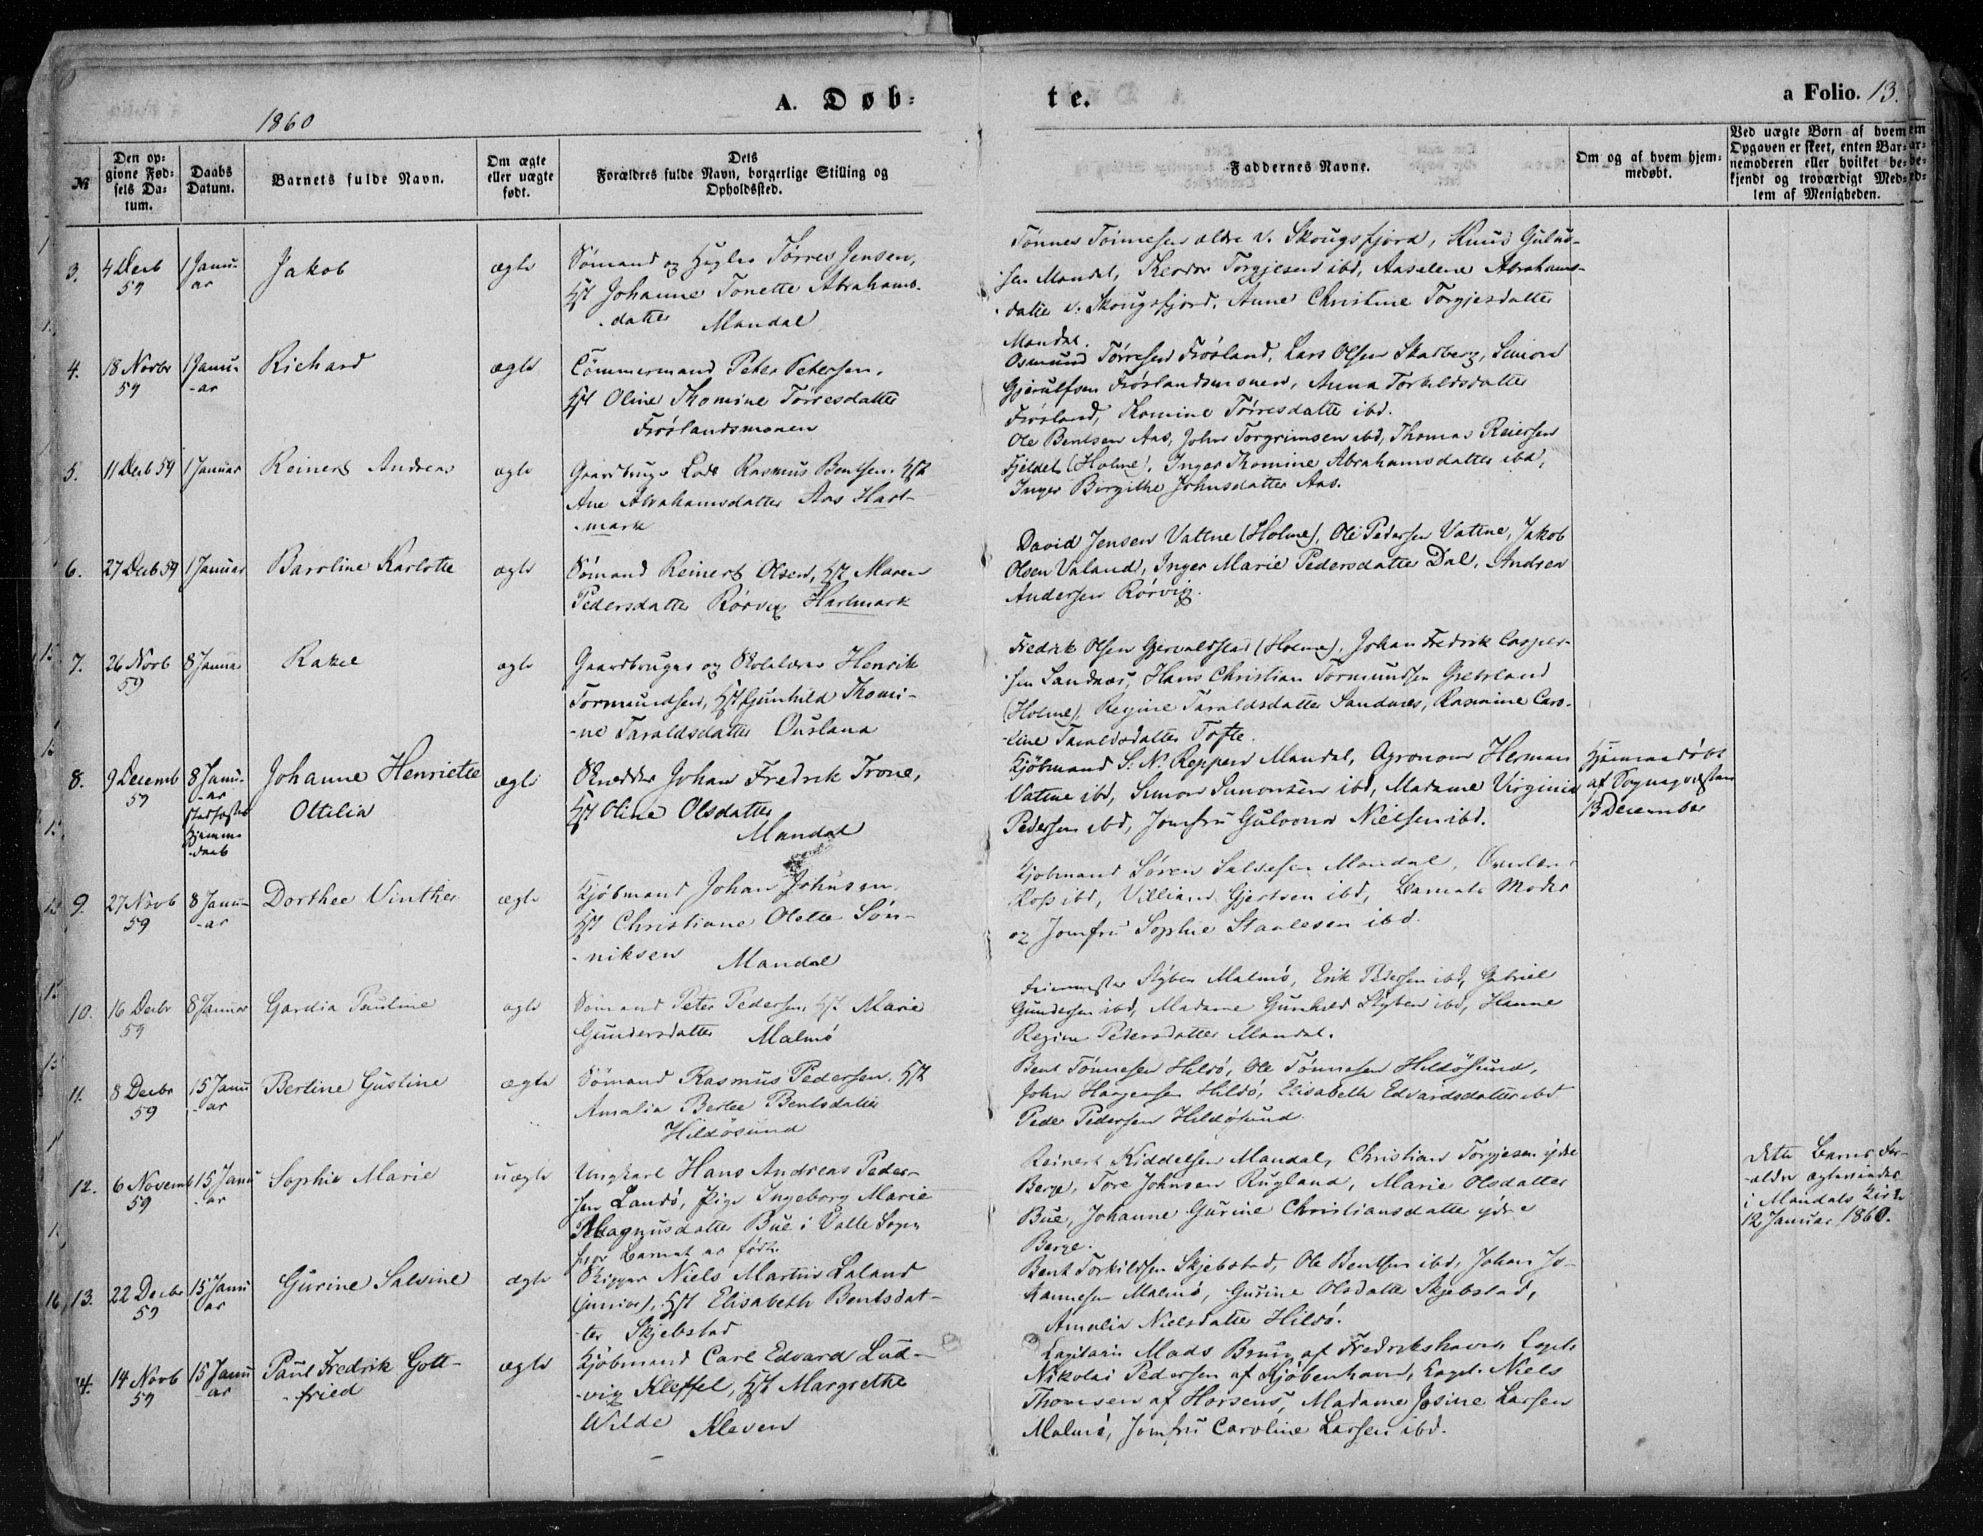 A. Døb-
te.
a Folio. 13.
1860
№
Den op-
givne Fød-
sels Da-
tum.
Daabs
Datum.
Barnets fulde Navn.
Om ægte
eller uægte
født.
Dets
Forældres fulde Navn, borgerlige Stilling og
Opholdssted.
Faddernes Navne.
Om og af hvem hjem-
medøbt.
Ved uægte Børn af hvem
Opgaven er skeet, enten Bar-
nemoderen eller hvilket be-
kjendt og troværdigt Med-
lem af Menigheden.
3.
4 Decb
59
1 Janu-
ar
Jakob
ægte
Sømand og Tørres Jensen,
Hst Johanne Tonette Abrahams-
-datter Mandal
Tønnes Tønnesen ældre v. Skougsfjord, Knud
sen Mandal, Theodor Torgjesen ibd, Aaselene Abrahams-
datter v. Skougsfjord, Anne Christine Torgjesdatter
Mandal.
4.
18 Novbr
59
1 Janu-
-ar
Richard
ægte
Tømmermand Peter Petersen,
Hst Oline Thomine Tørresdatter
Frøslandsmonen
Osmund Tørresen Frøsland, Lars Olsen Skarberg, Simon
Gjerulfsen Frøslandsmonen, Anna Torkildsdatter
Frøsland, Thomine Tørresdatter ibd.
5.
11 Decb 59
1 Januar
Reinert Andreas
ægte
Gaardbruger Rasmus Bentsen, Hst
Ane Abrahamsdatter Aas Hart-
-mark
Ole Bentsen Aas, John Torgrimsen ibd, Thomas Reiersen
Fjeldet (Holme), Inger Thomine Abrahamsdatter ibd,
Inger Birgithe Johnsdatter Aas.
6.
27 Decb 59
1 Januar
Baroline Karlotte
ægte
Sømand Reinert Olsen, Hst Maren
Pedersdatter Rørvig Hartmark
David Jensen Vattne (Holme), Ole Pedersen Vattne, Jakob
Olsen Valand, Inger Marie Pedersdatter Dal, Andrea
Andersen Rørvig.
7.
26 Novb
59
8 Januar
Rakel
ægte
Gaardbruger og Skolelærer Henrik
Tormundsen, Hst Gunhild Thomi-
-ne Taraldsdatter Ouslana
Fredrik Olsen Gjervoldstad (Holme), Johan Fredrik Casper-
sen Sandnæs, Hans Christian Tormundsen
(Holme), Regine Taraldsdatter Sandnæs, Rasmine Caro-
-line Taraldsdatter Tofte.
8.
9 Decemb
59
8 Janu-
-ar
stadfæstet
Hjemme
daab
Johanne Henriette
Ottilia
ægte
Snedker Johan Fredrik Trone,
Hst Oline Olsdatter
Mandal
Kjøbmand S. N. Reppen Mandal, Agronom Herman
Vattne ibd, Simon Simonsen ibd, Madame Virginia
Pedersen ibd, Jomfru Gulvona Nielsen ibd.
Hjemmedøbt
af Sognepræsten
13 December
9.
27 Novb
59
8 Janu-
-ar
Dorthee Vinther
ægte
Kjøbmand Johan Johnsen,
Hst Christiane Olette Søn-
-niksen Mandal
Kjøbmand Søren Salvesen Mandal,
Ross ibd, Villiam Gjertsen ibd, Barnets Moder
og Jomfru Sophie Staalesen ibd.
10.
16 Decbr
59
8 Januar
Gardia Pauline
ægte
Sømand Peter Pedersen, Hst Marie
Gundersdatter Malmø
Malmø, Erik Pedersen ibd, Gabriel
Gundersen ibd, Madame Gunhild ibd, Hanne
Regine Pedersdatter Mandal.
11.
8 Decbr
59
15 Janu
-ar
Bertine Gustine
ægte
Sømand Rasmus Pedersen, Hst
Amalia Bertee Bentsdatter
Hildøsund
Bent Tønnesen Hildø, Ole Tønnesen Hildøsund,
John Haagensen Hildø, Elisabeth Edvardsdatter ibd
Peder Pedersen Hildøsund
12.
6 Novemb
59
15 Janu
-ar
Sophie Marie
uægte
Ungkarl Hans Andreas Peder-
sen Landø, Pige Ingeborg Marie
Magnusdatter Bue i Valle Sogn
hvor Barnet er født.
Reinert Kiddelsen Mandal, Christian Torgjesen ydre
Berge, Tore Johnsen Rugland, Marie Olsdatter
Bue, Johanne Gurine Christiansdatter ydre
Berge.
Dette Barns For-
ældre ægteviedes
i Mandals Kirke
12 Januar 1860.
13.
22 Decbr
59
15 Janu
ar
Gurine Salvine
ægte
Skipper Niels Martin Laland
(junior), Hst Elisabeth Bentsdat-
-ter Skjebstad
Bent Torkildsen Skjebstad, Ole Bentsen ibd, Johan Jo-
hannesen Malmø, Gurine Olsdatter Skjebstad,
Amalia Nielsdatter Hildø.
14.
14 Novb
59
15 Janu
ar
Paul Fredrik Gott-
-fried
ægte
Kjøbmand Carl Edvard Lud-
-vig Kleffel, Hst Margrethe
Wilde Kleven
Capitain Mads Bruun af Fredrikshavn, Capt.
Nikolai Pedersen af Kjøbenhavn, Capt. Niels
Thomsen af Horsens, Madame Josine Larsen
Malmø, Jomfru Caroline Larsen ibd.